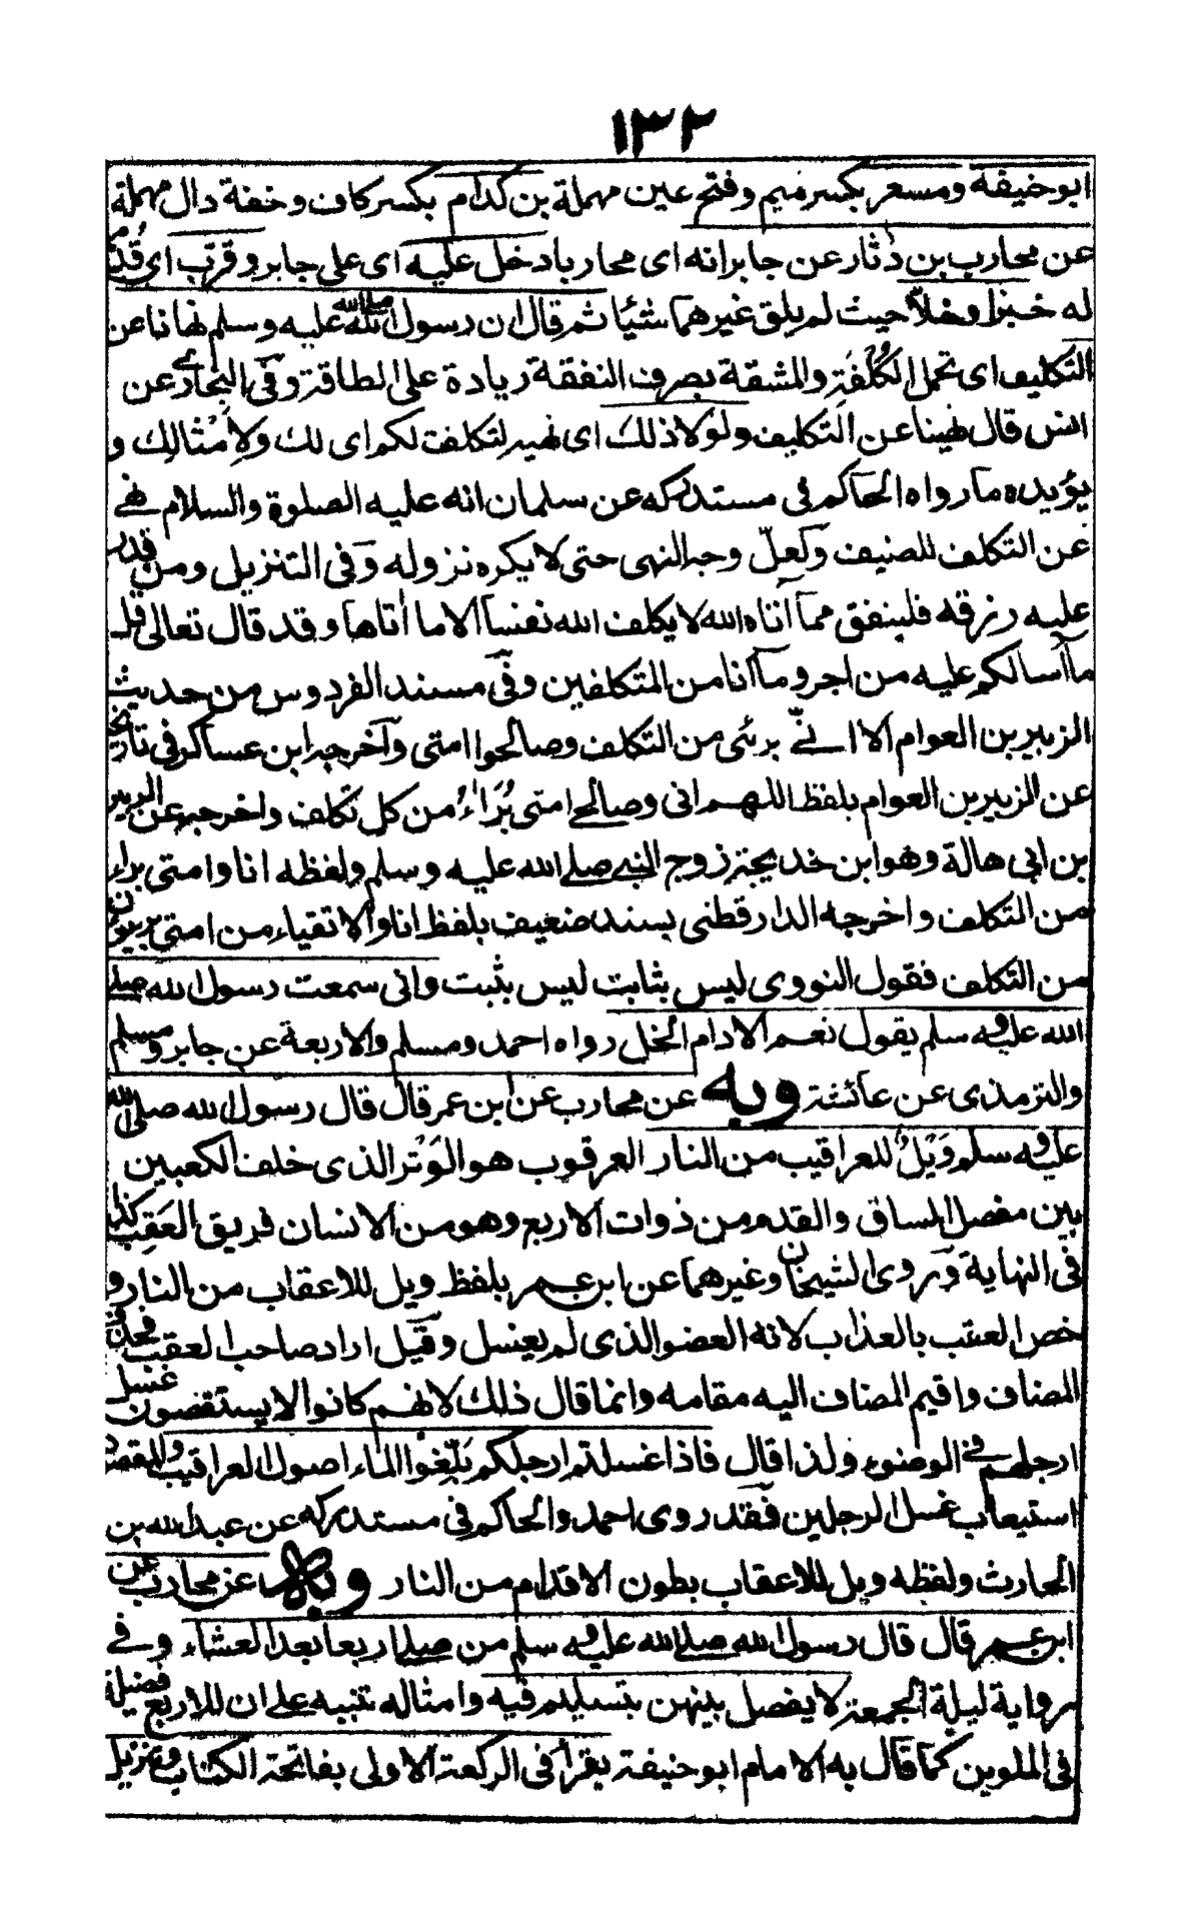 ١٣٢
ابو حنيفة ومسعر بكسر ميم وفتح عين مهملة بن كدام بكسر كاف وخفة دال مهملة
عن محارب بن دثار عن جابر انه اى محاربا دخل عليه اى على جابر وقرب اى قُدِّم
له خبزا وخلاّ حيث لم يلق غيرهما شيئا ثم قال ان رسول الله صلى الله عليه وسلم نهانا عن
التكليف اى تحمل الكُلْفَةِ والمشقة بصرف النفقة زيادة على الطاقة وفى البخارے عن
انس قال نهينا عن التكليف ولولا ذلك اى نهيه لتكلفت لكم اى لك ولِاَمْثالك و
يؤيده ما رواه الحاكم فى مستدركه عن سلمان انه عليه الصلوة والسلام نهے
عن التكلف للضيف ولعلّ وجه النهى حتى لا يكره نزوله وفى التنزيل ومن قدر
عليه رزقه فلينفق مما آتاه الله لا يكلف الله نفسا الا ما اٰتاها وقد قال تعالى قل
ما آسالكم عليه من اجر وما آنا من المتكلفين وفى مسند الفردوس من حديث
الزبير بن العوام الا انےّ برئى من التكلف وصالحوا امتى وآخرجه ابن عساكر فى تاريخه
عن الزبير بن العوام بلفظ اللهم انى وصالحے امتى بُرَاءُ من كل تكلف واخرجه عن الزبير
بن ابى هالة وهو ابن خديجة زوج النبے صلے الله عليه وسلم ولفظه انا وامتى براء
من التكلف واخرجه الدارقطنى بسند ضعيف بلفظ انا والاتقياء من امتى بريئون
من التكلف فقول النووى ليس بثابت ليس بثبت وانى سمعت رسول الله صلے
الله عليه وسلم يقول نعم الادام الخل رواه احمد ومسلم والاربعة عن جابر ومسلم
والترمذى عن عائشة وبه عن محارب عن ابن عمر قال قال رسول الله صلى الله
عليه وسلم وَيْلٌ للعراقيب من النار العرقوب هو الوَتْر الذى خلف الكعبين
بين مفصل الساق والقدم من ذوات الاربع وهو من الانسان فريق العَقِب كذا
فى النهاية وروى الشيخان وغيرهما عن ابن عمر بلفظ ويل للاعقاب من النار و
خص العقب بالعذاب لانه العضو الذى لم يغسل وقيل اراد صاحب العقب فحذف
المضاف واقيم المضاف اليه مقامه وانما قال ذلك لانهم كانوا لا يستقصون غسل
ارجلهم فے الوضوء ولذا قال فاذا غسلتم ارجلكم بَلِّغوا الماء اصول العراقيب والمقصود
استيعاب غسل الرجلين فقد روى احمد والحاكم فى مستدركه عن عبد الله بن
الحارث ولفظه ويل للاعقاب بطون الاقدام من النار وبه عن محارب عن
ابن عمر قال قال رسول الله صلے الله عليه وسلم من صلے اربعا بعد العشاء وفے
رواية ليلة الجمعة لا يفصل بينهن بتسليم فيه وامثاله تنبيه علے ان للاربع فضيلة
فى الملوين كما قال به الامام ابو حنيفة يقرأ فى الركعة الاولى بفاتحة الكتاب وتنزيل